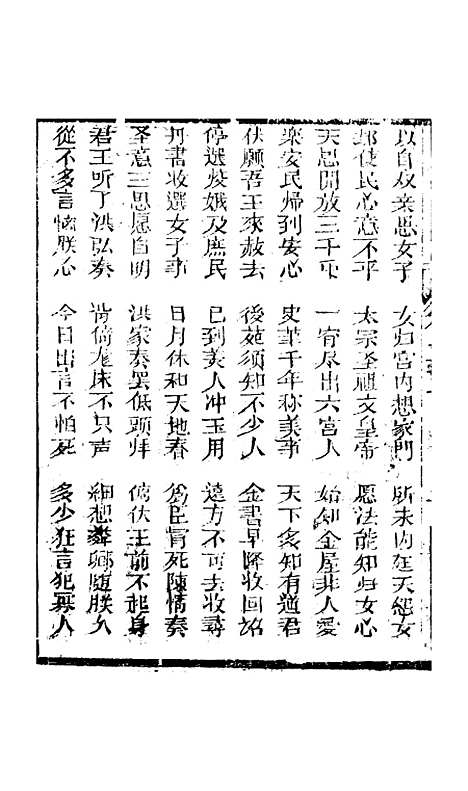 以自双亲思女子 女归宫内想家門 㪽未内在天怨女
郎使民心意不平 太宗圣祖文皇帝 愿法能知归女心
天恩開放三千 一宵尽出六宫人 始知金屋非人愛
楽安民帰到安心 史筆千年称美事 天下多知有道君
伏願吾王來赦去 後苑须知不少人 金書早降收回詔
停選嫔娥及庶民 已到美人冲玉用 遠方不可去收尋
丹書收選女子事 日月休和天地春 為臣冒死陳情奏
圣意三思愿自明 洪家奏罢低頭拜 俯伏王前不起身
君王听了洪弘奏 倚龙床不只声 細想卿随朕久
從不多言恼朕心 今日出言不怕死 多少狂言犯寡人